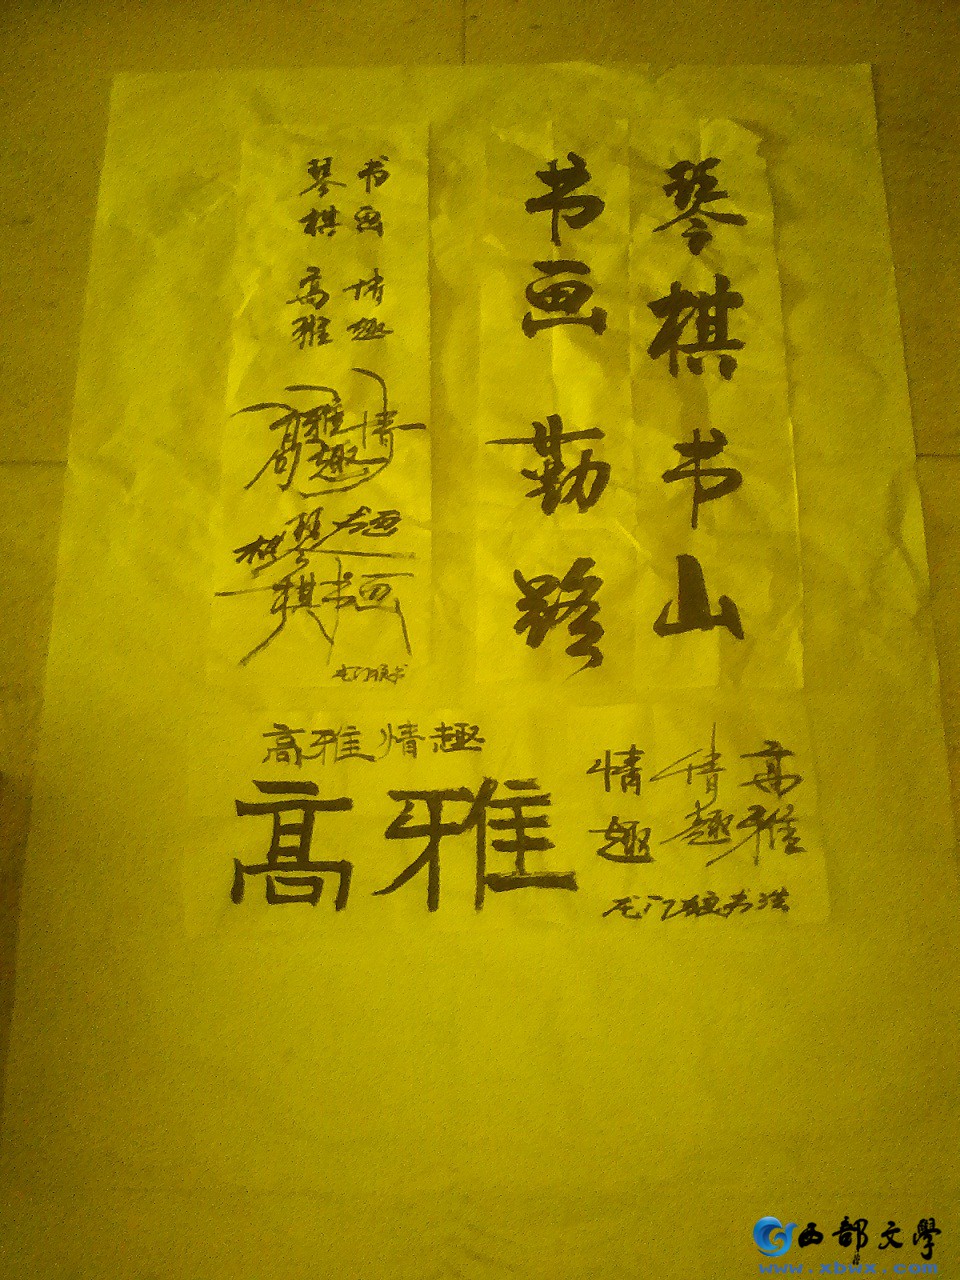 琴棋书山
书画勤路
琴棋 书画
高雅 情趣
高雅情趣
琴棋书画
棋书画
高雅情趣
高雅
高雅
情趣
情趣
西部文學
www.xbwx.com